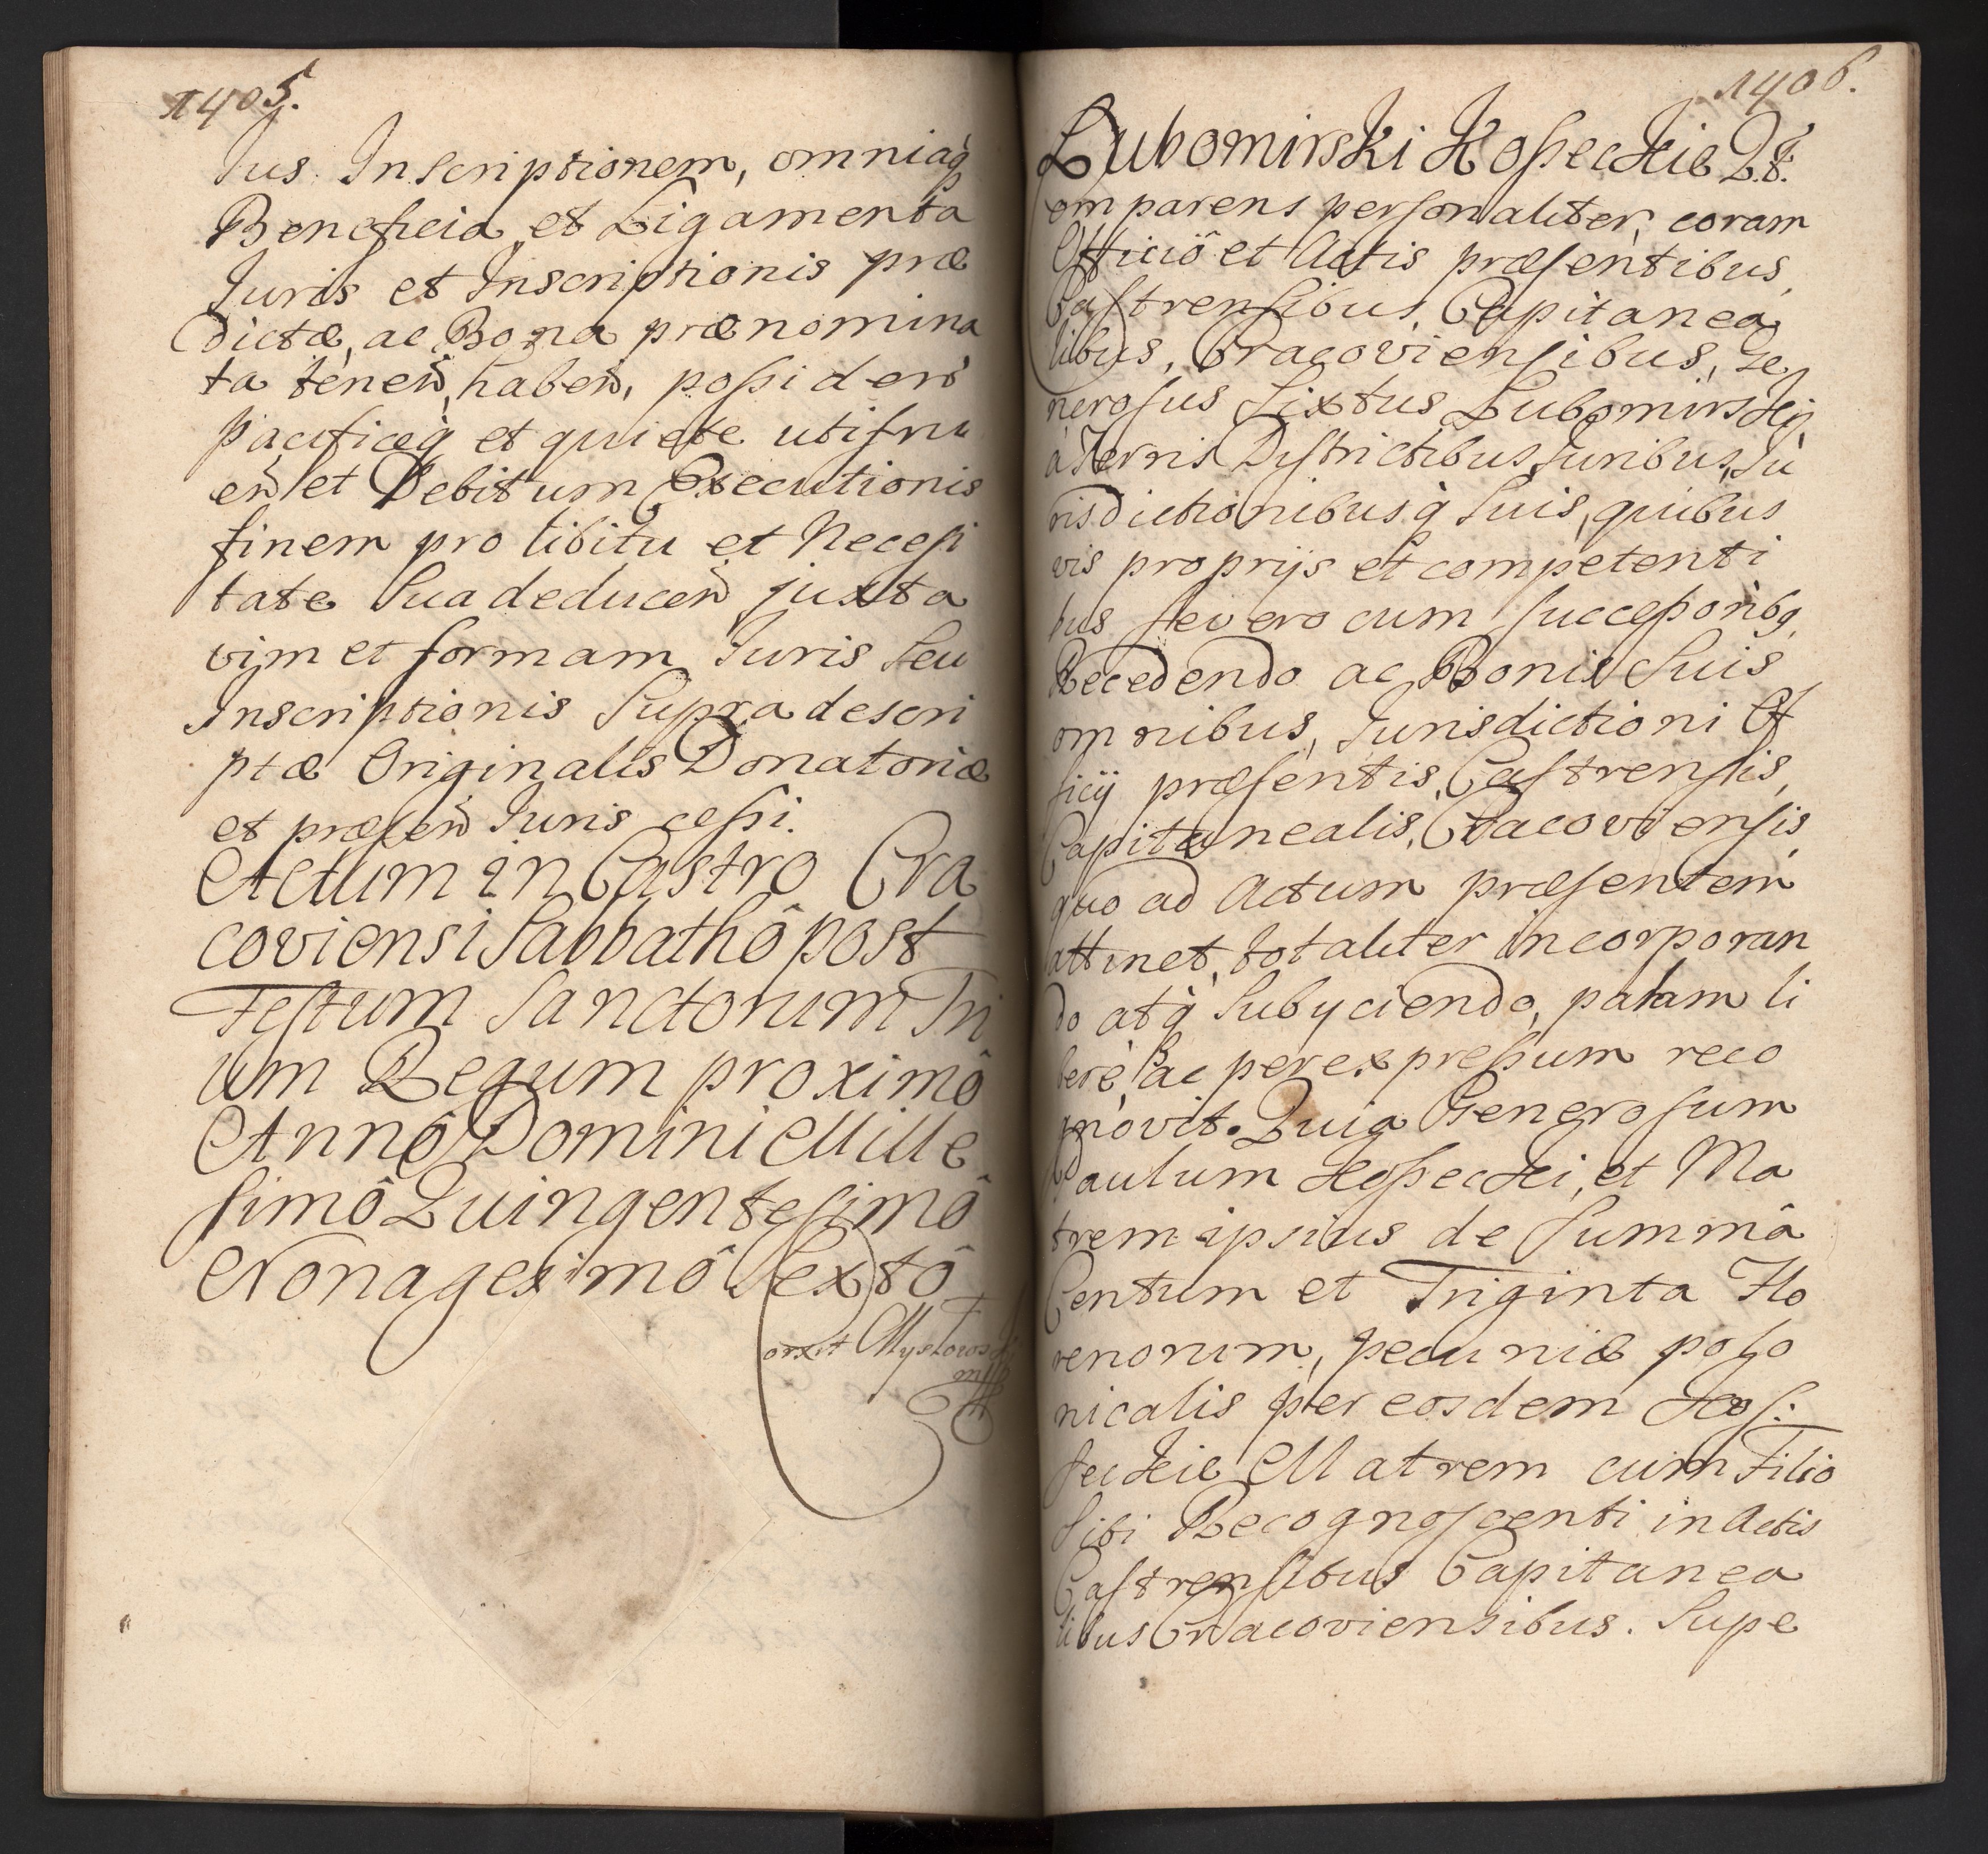 1405.
Jus Inscriptionem, omniaq̀
Beneficia, et Ligamenta
Juris et Inscriptionis præ
dictæ, ac Bona prænomina
ta tenen̄, haben̄, poſsiden̄
pacificeq̀ et quiete utifru
en̄ et Debitum Executionis
finem pro libitu et Neceſsi
tate Sua deducen̄ juxta
vim et formam Juris Seu
Inscriptionis Supra descri
ptæ Originalis Donatoriæ
et præſen̄ Juris ceſsi.
Actum in Castro Cra
coviensi Sabbathô post
Feſtum Sanctorum Tri
um Regum proximô
Annô Dominî Mille
ſimô Quingenteſimô
Nonagesimô Sextô
1406.
Lubomirski Koſseckie Qt.
omparens perſonaliter, coram
Officiô et Actis præſentibus,
Caſtrenſibus, Capitanea
libus, Cracovienſibus, Ge
neroſus Sixtus Lubomirski,
à Terris Diſtrictibus, Juribus, Ju
risdictionibusq̀ Suis, quibus
vis proprijs et competenti
bus ſe vero cum ſucceſsoribq
Recedendo ac Bonis Suis
omnibus, Jurisdictioni Of
ficij præſentis, Caſtrenſis,
Capitanealis, Cracovienſis,
quo ad Actum præſentem
attinet, totaliter incorporan
do atq̀ Subyciendo, palam li
berè, ac per expreſsum reco
gnovit. Quia Generoſum
Paulum Koſsecki, et Ma
trem ipsius de Summâ
Centum et Triginta Flo
renorum, pecuniæ polo
nicalis per eosdem Koſ:
ſeckie Matrem cum Filio
Sibi Recognoſcenti in Actis
Caſtrenſibus Capitanea
libus Cracoviensibus. Supe